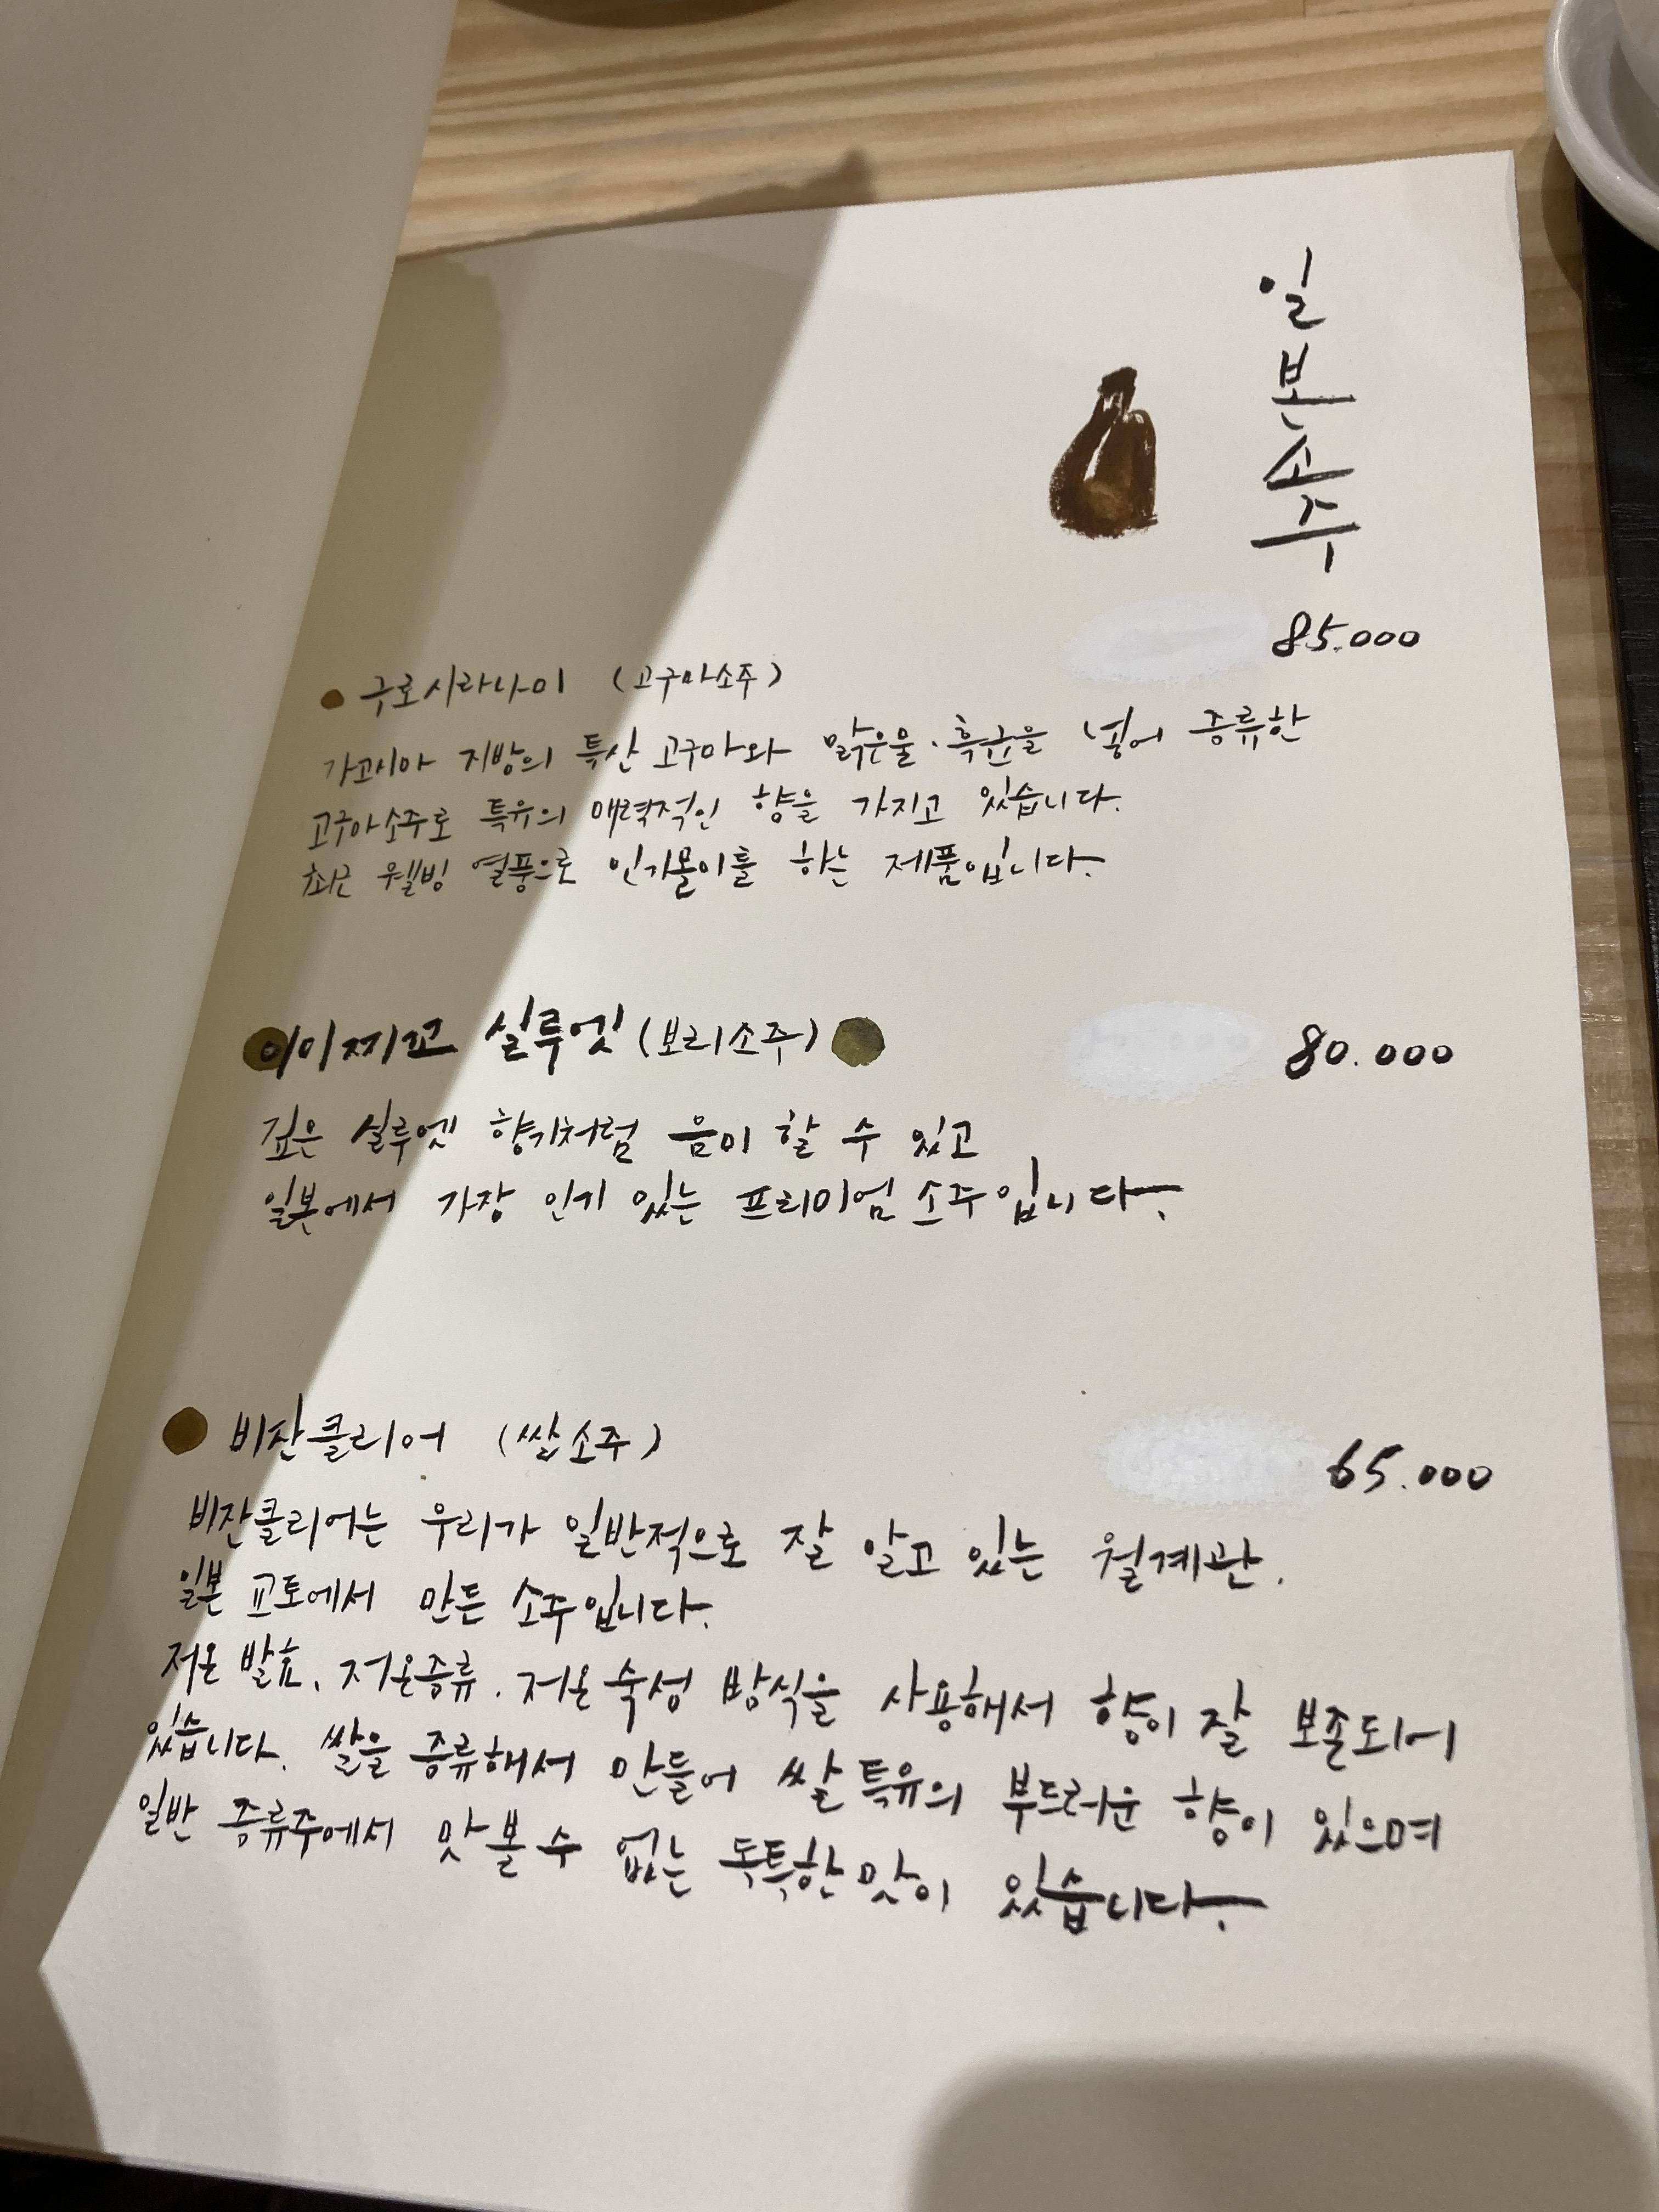 일본소주
85.000
구로시라나미 (고구마소주)
가고시마 지방의 특산 고구마와 맑은물.흑균을 넣어 증류한
고구마소주로 특유의 매력적인 향을 가지고 있습니다.
최근 웰빙 열풍으로 인기몰이를 하는 제품입니다.
이이찌꼬 실루엣 (보리소주) 80.000
깊은 실루엣 향기처럼 음미 할 수 있고
일본에서 가장 인기 있는 프리미엄 소주입니다.
비잔클리어 (쌀소주) 65.000
비잔클리어는 우리가 일반적으로 잘 알고 있는 월계관.
일본 교토에서 만든 소주입니다.
저온 발효, 저온증류. 저온 숙성 방식을 사용해서 향이 잘 보존되어
있습니다. 쌀을 증류해서 만들어 쌀 특유의 부드러운 향이 있으며
일반 증류주에서 맛 볼 수 없는 독특한 맛이 있습니다.